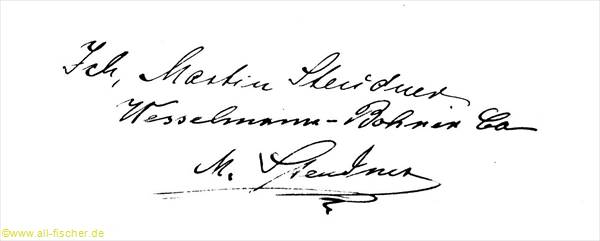 Ich, Martin Steudner
Wesselmann-Bohrer Co
M. Steudner
©www.all-fischer.de